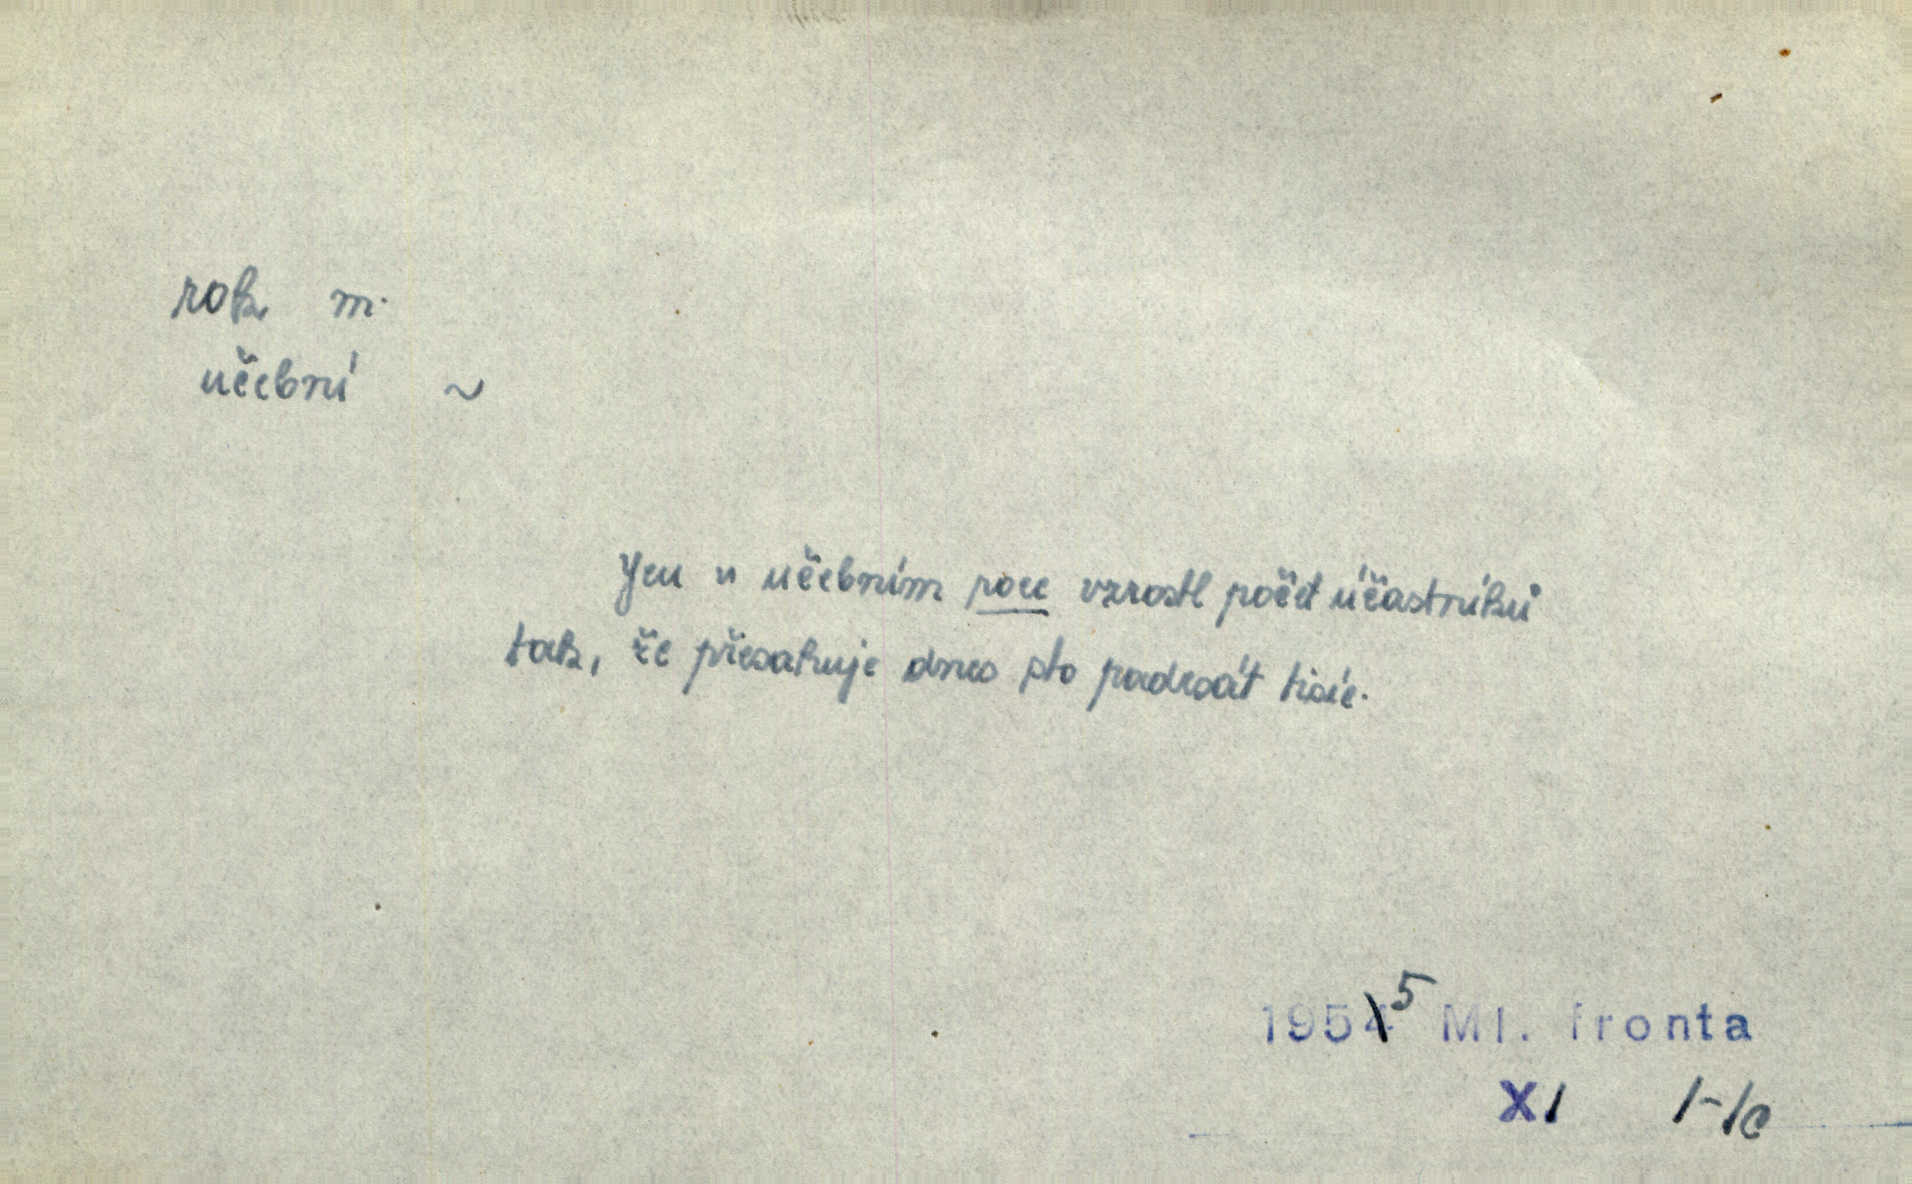 rok m.
učební ~
Jen v učebním roce vzrostl počet účastníků
tak, že přesahuje dnes sto padesát tisíc.
1955 Ml. fronta
XI 1-1c